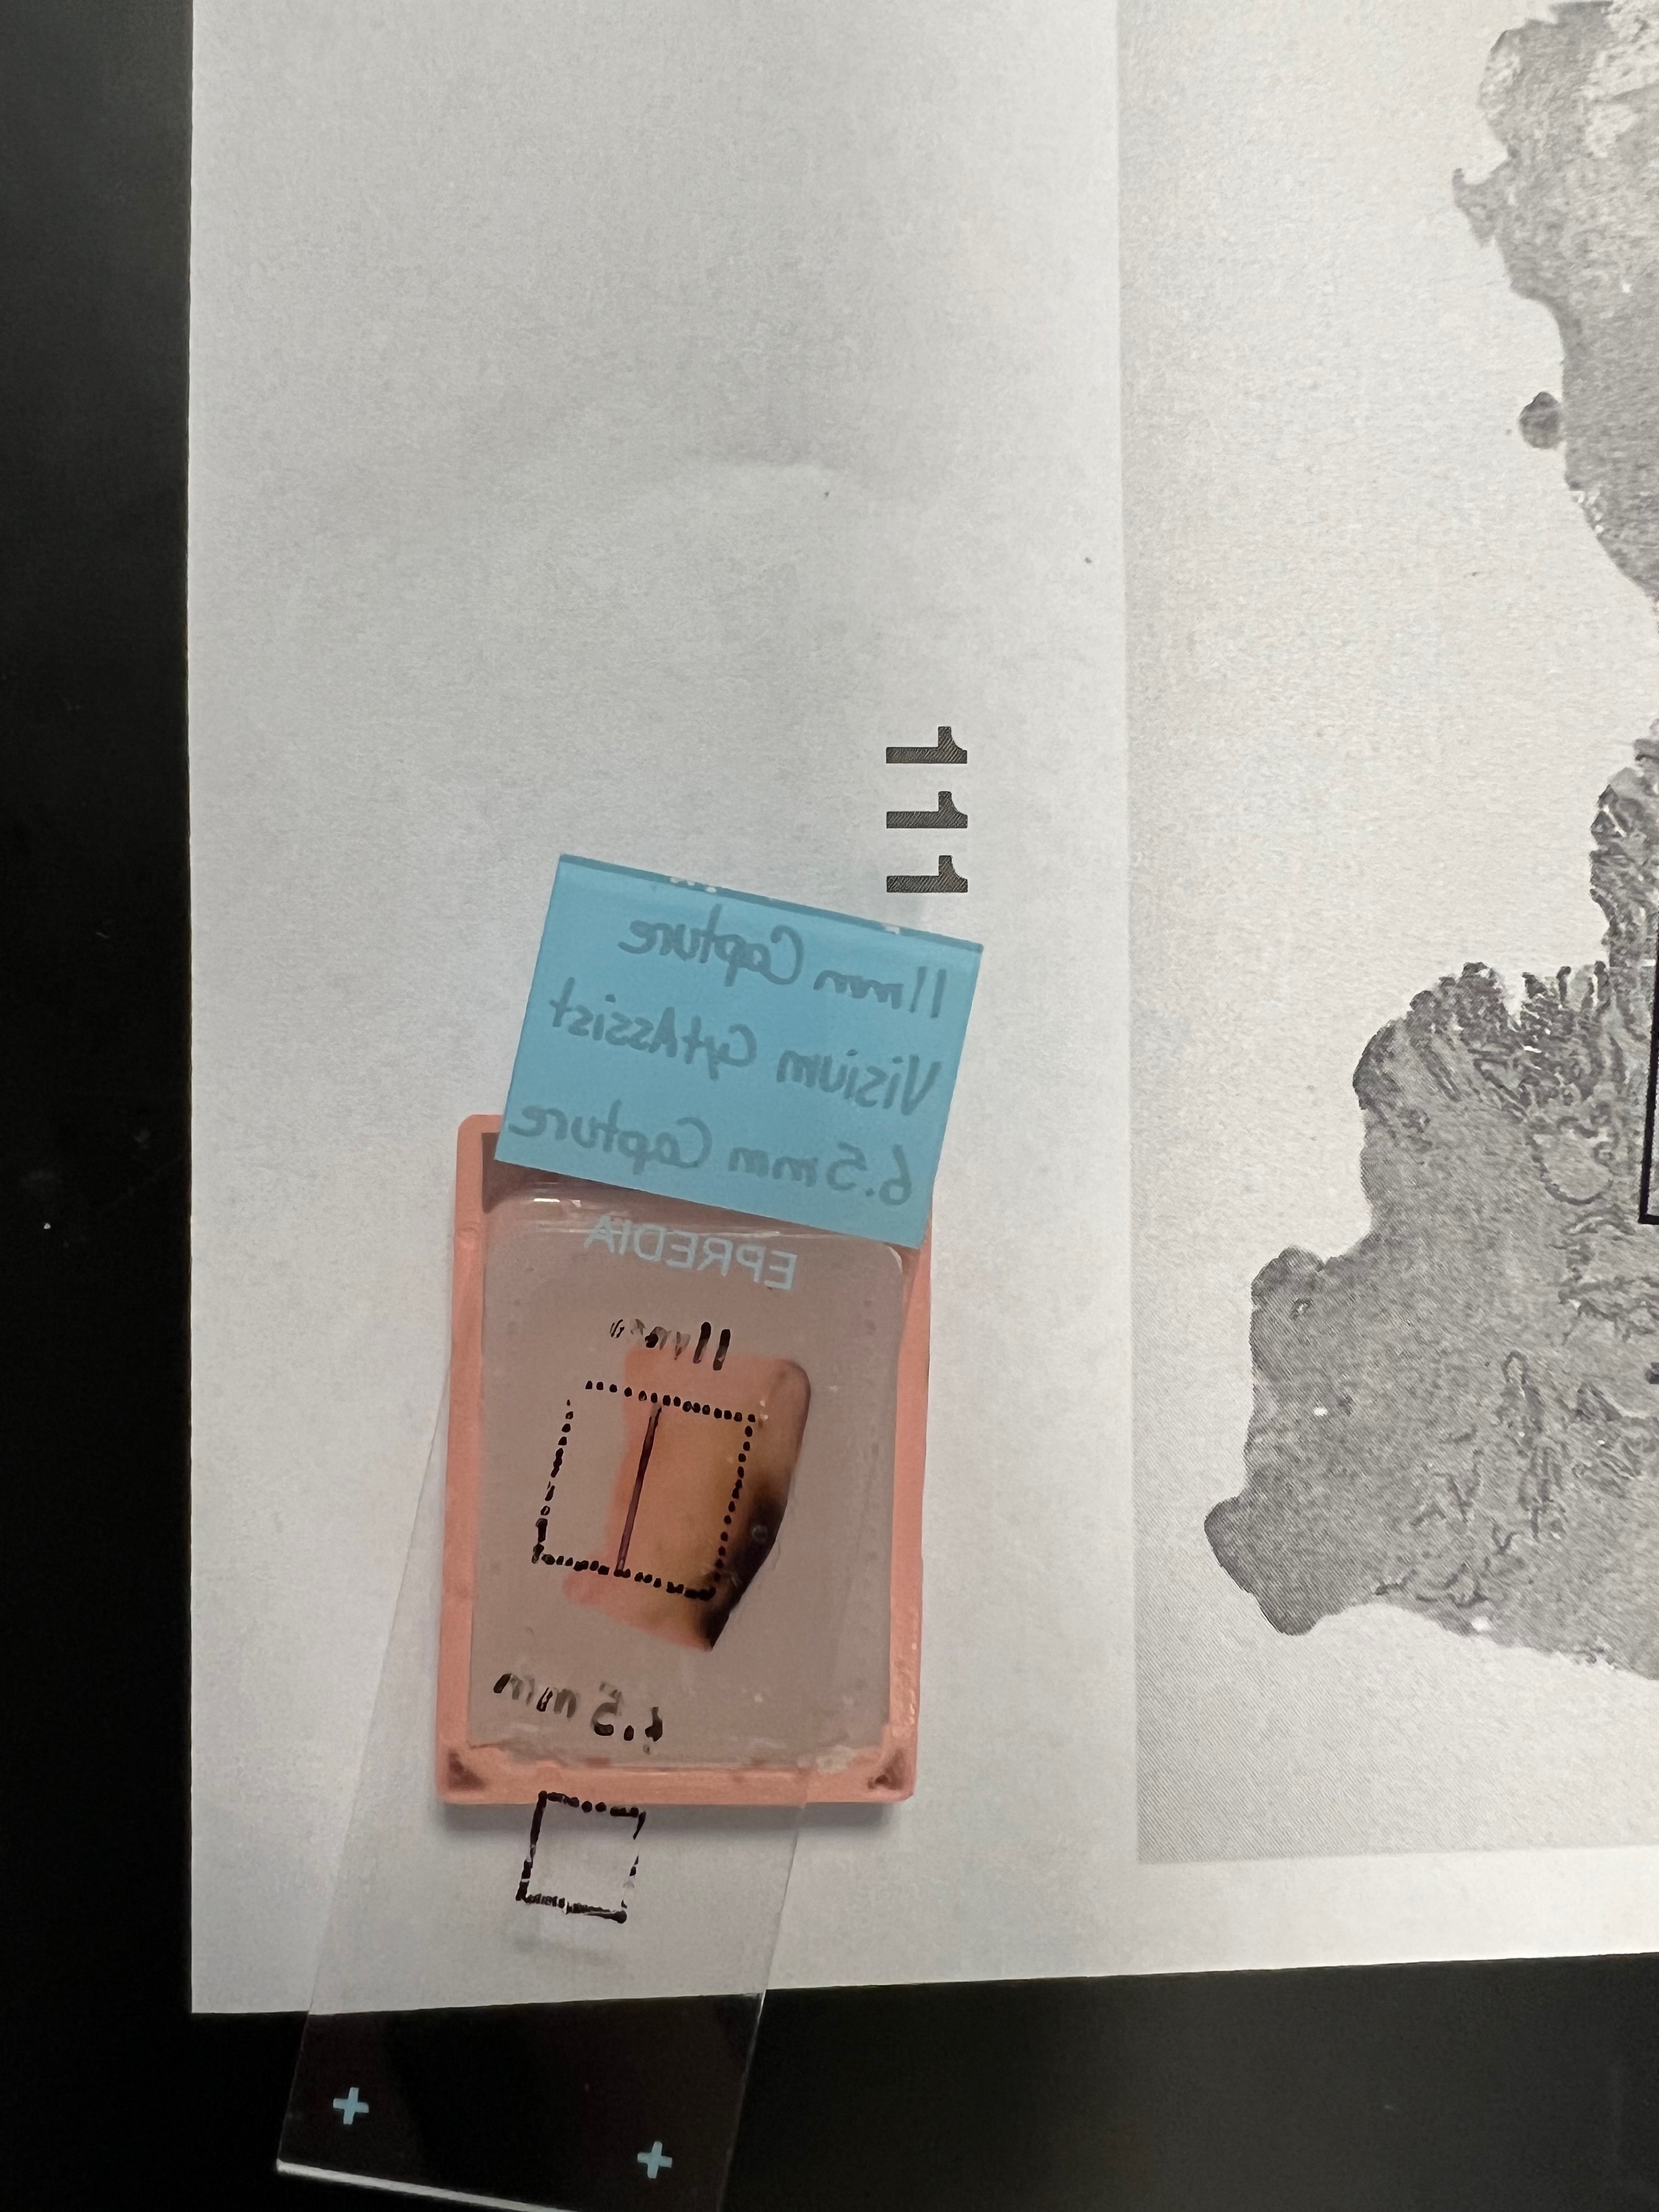 111
11mm Capture
Visium CytAssist
6.5mm Capture
EPREDIA
11mm
6.5 mm